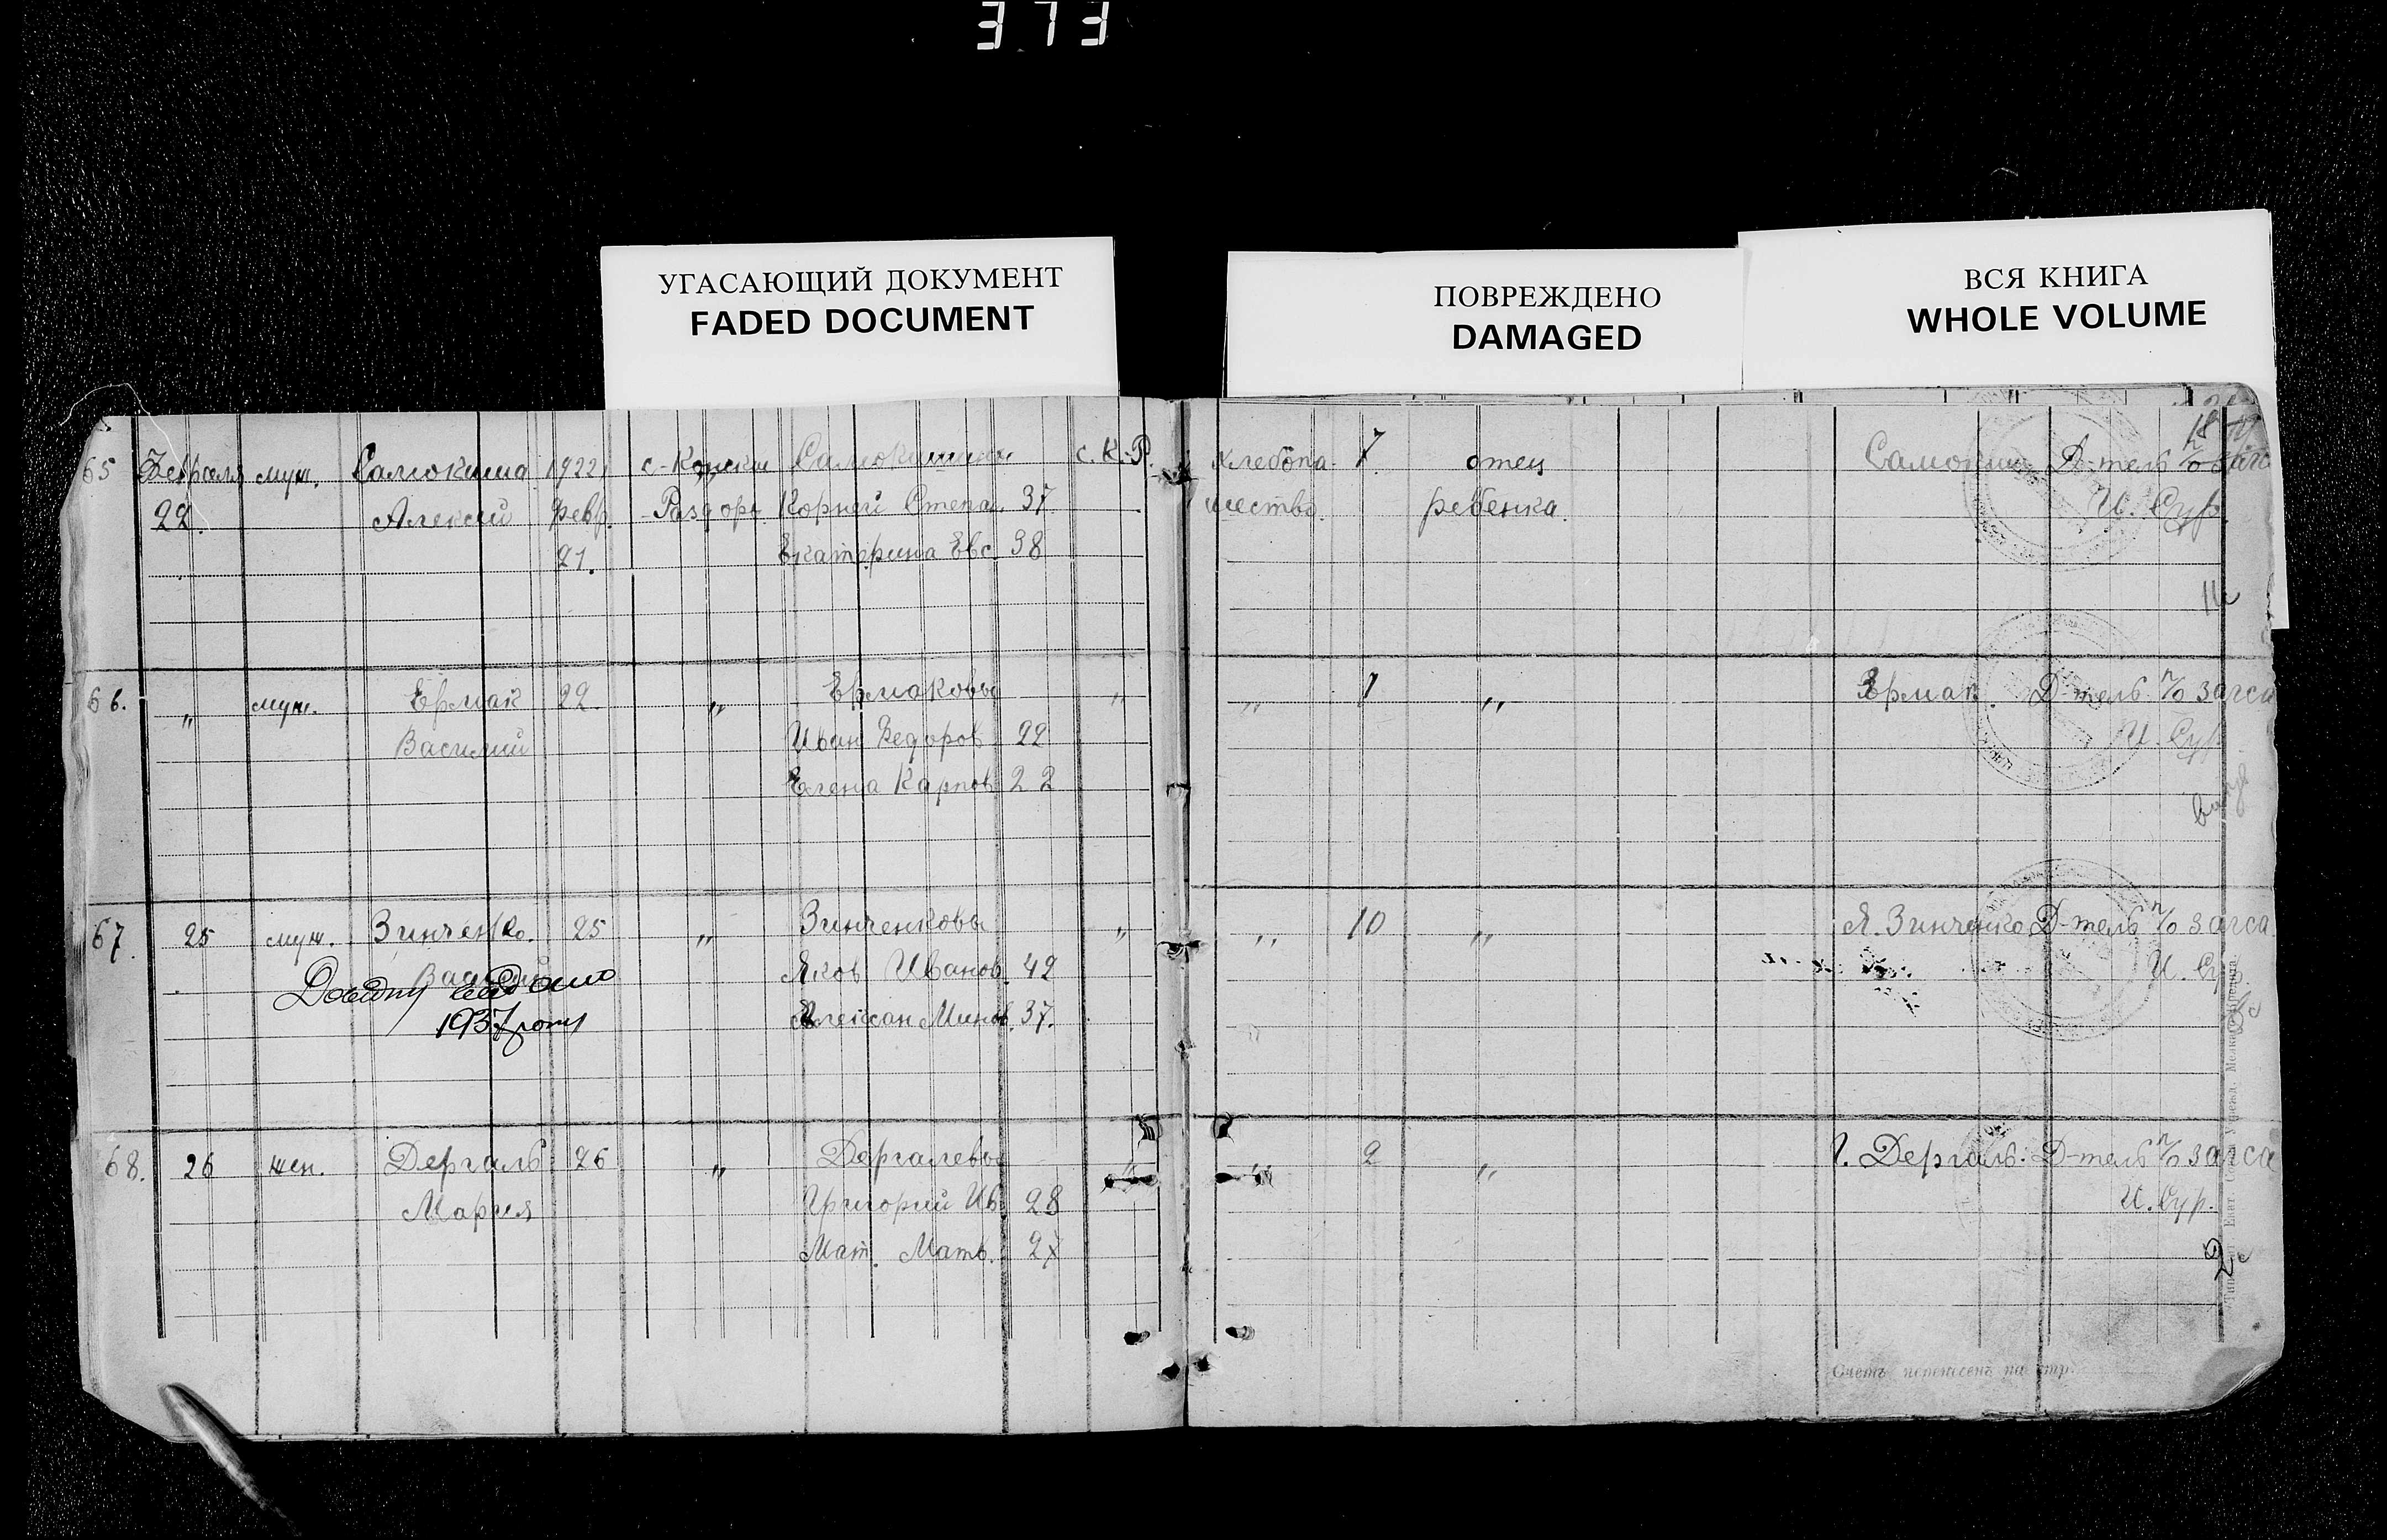 373
УГАСАЮЩИЙ ДОКУМЕНТ
FADED DOCUMENT
ПОВРЕЖДЕНО
DAMAGED
ВСЯ КНИГА
WHOLE VOLUME
65 Февраля муж. Самокиша 1922 с-Конски Самокишины с. К.-Р. хлебопа- 7. отец Д-тель п/о загс
22. Алексей февр. Раздоры Корней Степа. 37 шество. ребенка. И. Сур.
21. Екатерина Евс. 38
66. „ муж. Ермак 22. „ Ермаковы „ „ 1 „ Ермак. Д-тель п/о загса
Василий Иван Федоров 22 И. Сур.
Елена Карпов 22
67. 25 муж. Зинченко. 25 „ Зинченковы „ „ 10 „ Я. Зинченко Д-тель п/о загса
Василий Яков Иванов. 42 И. Сур.
1937 року Алексан Минов. 37.
68. 26 жен. Дергаль 26 „ Дергалевы „ „ 2 „ Г. Дергаль. Д-тель п/о загса
Мария Григорий Ив. 28 И. Сур.
Мат. Матв. 27
2
Счетъ перенесенъ на стр.